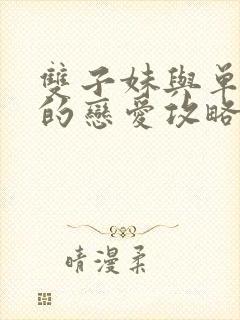 雙子妹與單
的戀愛攻略
晴漫柔